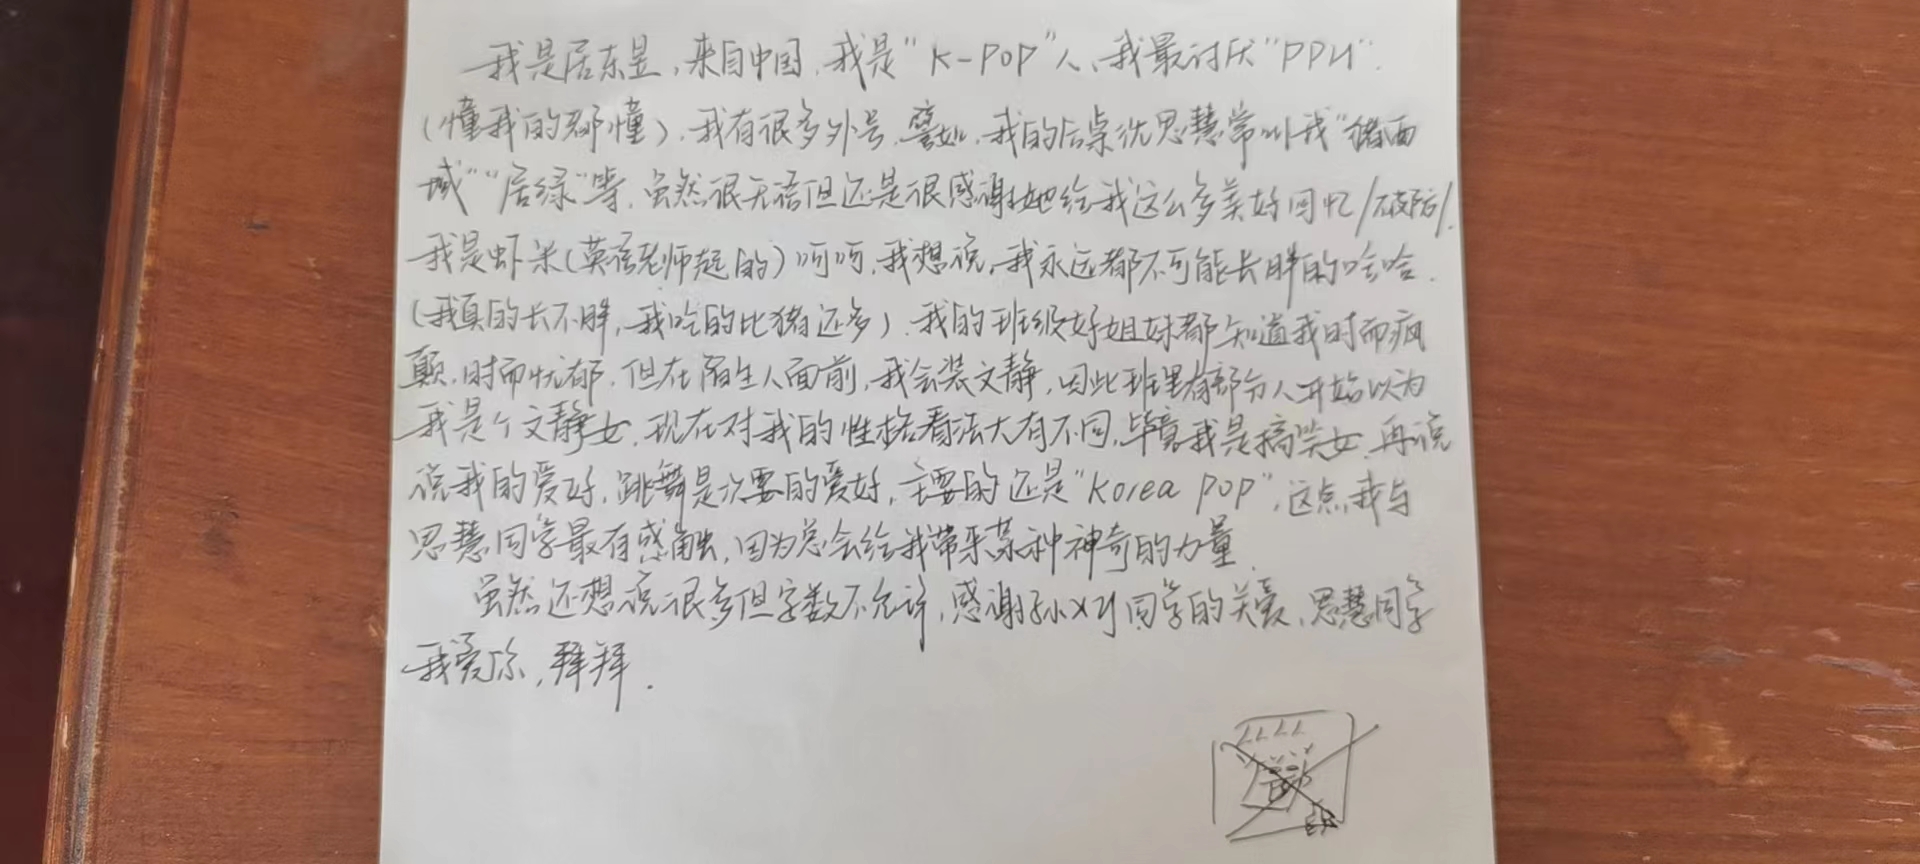 我是居东昱,来自中国,我是“K-POP”人、我最讨厌“PPU”.
(懂我的都懂).我有很多外号,譬如,我的后桌沈思慧常叫我“猪西
域”“居绿”等,虽然很无语但还是很感谢她给我这么多美好回忆/破防/.
我是虾米(英语老师起的)呵呵,我想说,我永远都不可能长胖的哈哈.
(我真的长不胖,我吃的比猪还多).我的班级好姐妹都知道我时而疯
颠,时而忧郁.但在陌生人面前,我会装文静,因此班里有部分人开始以为
我是个文静女,现在对我的性格看法大有不同,毕竟我是搞笑女.再说
说我的爱好,跳舞是次要的爱好,主要的还是“Korea pop”,这点我与
思慧同学最有感触,因为总会给我带来某种神奇的力量.
虽然还想说很多但字数不允许,感谢孙XY同学的关爱,思慧同学
我爱你,拜拜.